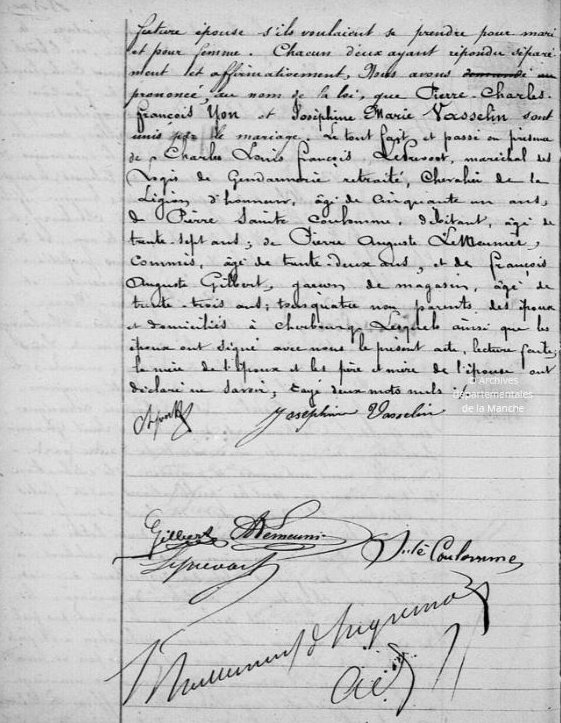 future épouse s'ils voulaient se prendre pour mari
et pour femme. Chacun d'eux ayant répondu séparé-
ment et affirmativement, Nous avons demandé au
prononcé, au nom de la loi, que Pierre-Charles-
François Yon et Joséphine Marie Vasselin sont
unis par le mariage. Le tout fait et passé en présence
de Charles Louis François Leprevost, maréchal des
Logis de Gendarmerie retraité, Chevalier de la
Légion d'honneur, âgé de cinquante un ans,
de Pierre Sainte Coulomme, débitant, âgé de
trente-sept ans; de Pierre Auguste LeMeunier,
commis, âgé de trente-deux ans, et de François
Auguste Gilbert, garçon de magasin, âgé de
trente trois ans; tous quatre non parents des époux
et domiciliés à Cherbourg. Lesquels ainsi que les
époux ont signé avec nous le présent acte, lecture faite;
la mère de l'époux et les père et mère de l'épouse ont
déclaré ne savoir; rayé deux mots nuls.
© Archives
Départementales
de la Manche
Joséphine Vasselin
Gilbert Lemeunier
Ste Coulomme
Leprevost